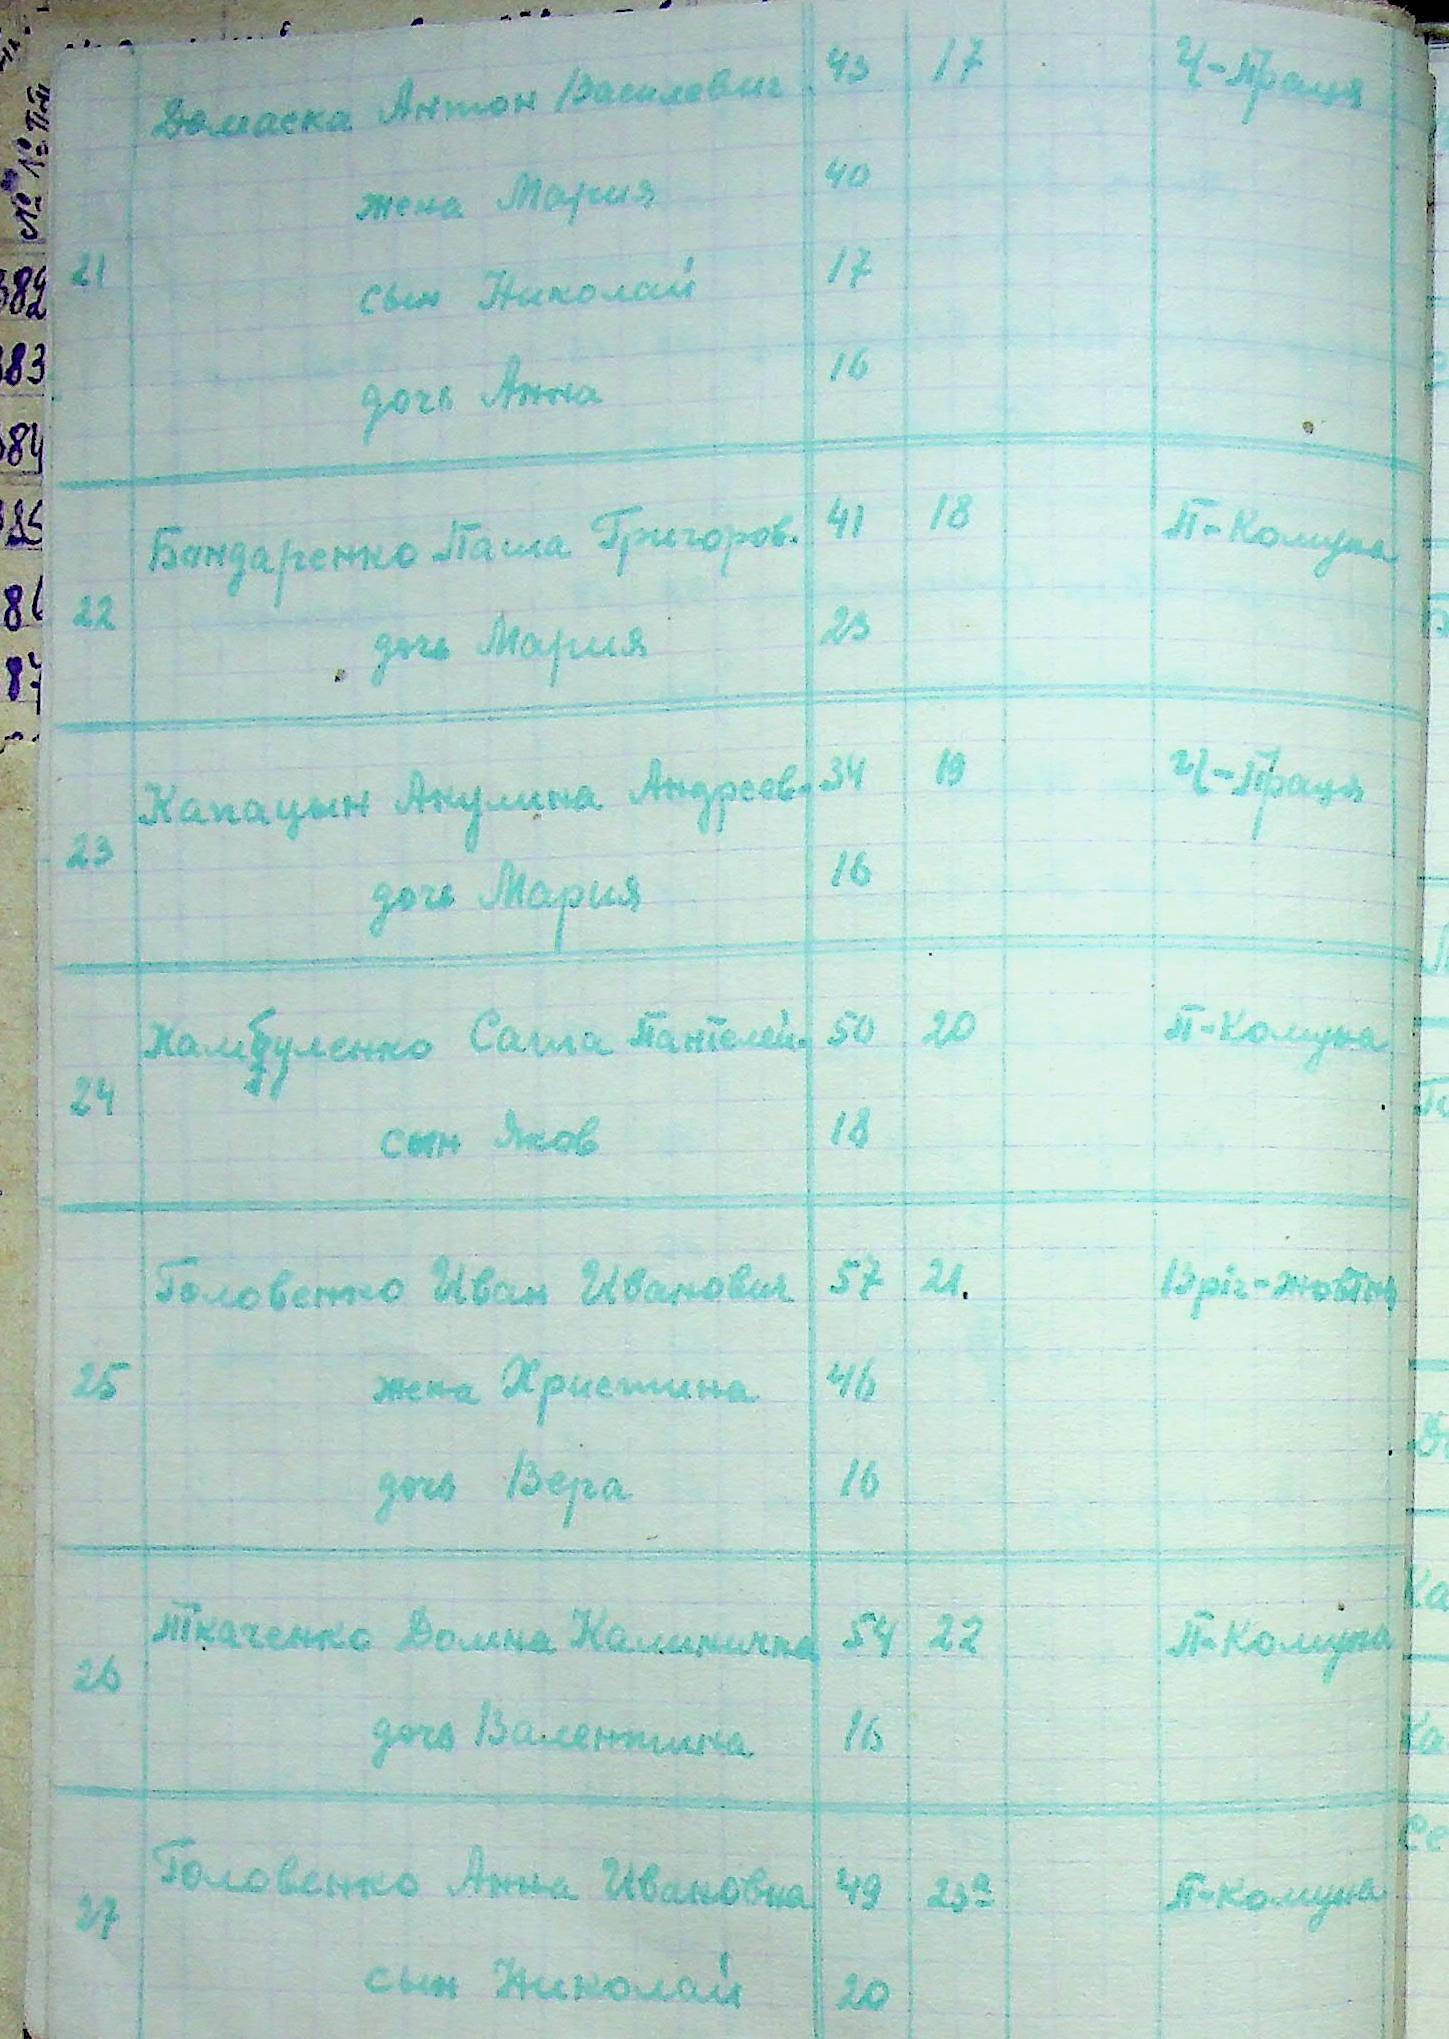 Домаска Антон Василевич 43 17 Ч-Праця
жена Мария 40
21 сын Николай 17
дочь Анна 16
Бондаренко Паша Григоров. 41 18 П-Комуна
22 дочь Мария 23
Капацын Акулина Андреев. 34 19 Ч-Праця
23 дочь Мария 16
Хамбуленко Саша Пантелей. 50 20 П-Комуна
24 сын Яков 18
Головенко Иван Иванович 57 21. Вріг-жовтня
25 жена Христина 46
дочь Вера 16
Ткаченко Домна Калинична 54 22 П-Комуна
26 дочь Валентина 16
Головенко Анна Ивановна 49 23а П-Комуна
27 сын Николай 20
№ № ПП
382
383
384
385
86
87